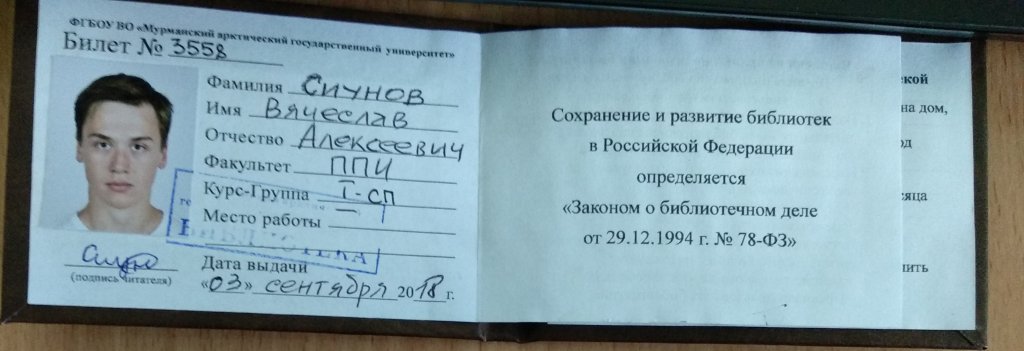 ФГБОУ ВО «Мурманский арктический государственный университет»
Билет № 3558
Фамилия Сиунов
Имя Вячеслав
Отчество Алексеевич
Факультет ППИ
Курс-Группа I-СП
Место работы —
БИБЛИОТЕКА
(подпись читателя)
Дата выдачи
«03» сентября 2018 г.
Сохранение и развитие библиотек
в Российской Федерации
определяется
«Законом о библиотечном деле
от 29.12.1994 г. № 78-ФЗ»
на дом,